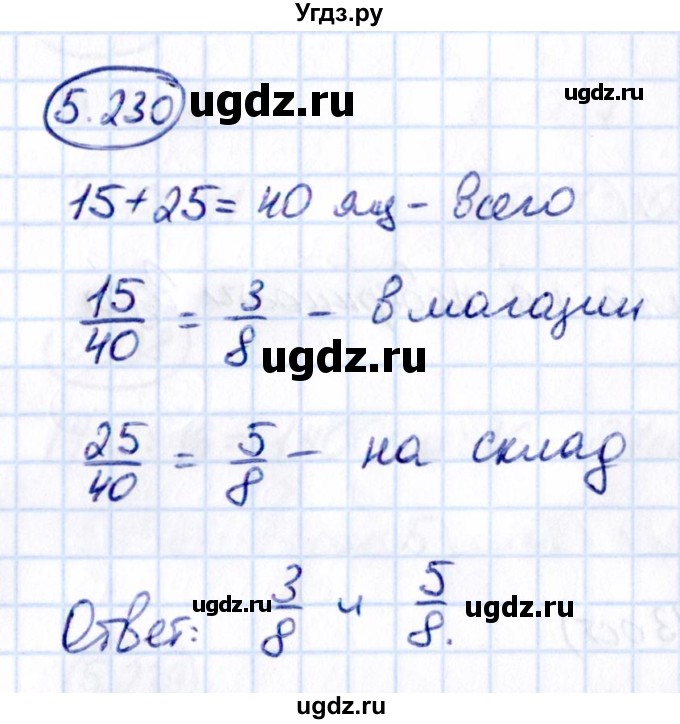 Угдз.ру
5.230 ugdz.ru ugdz.ru
15+25=40 ящ - всего
15/40 = 3/8 - в магазин
ugdz.ru
25/40 = 5/8 - на склад
Ответ: 3/8 и 5/8.
ugdz.ru ugdz.ru
ugdz.ru